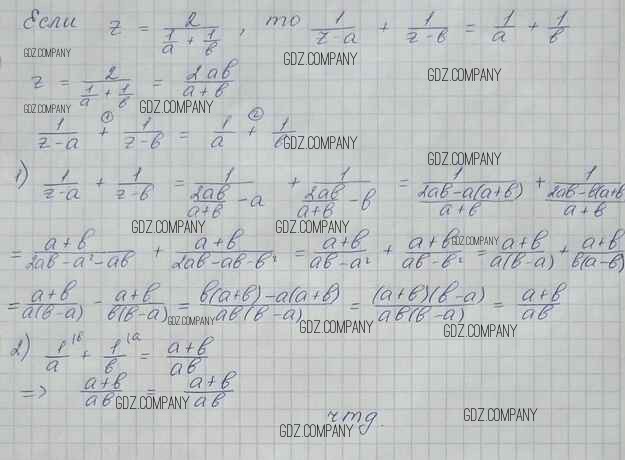 Если z = 2/(1/a + 1/b), то 1/(z-a) + 1/(z-b) = 1/a + 1/b
GDZ.COMPANY GDZ.COMPANY
z = 2/(1/a + 1/b) = 2ab/(a+b) GDZ.COMPANY
GDZ.COMPANY GDZ.COMPANY
1/(z-a) +① 1/(z-b) = 1/a +② 1/b GDZ.COMPANY
GDZ.COMPANY
1) 1/(z-a) + 1/(z-b) = 1/(2ab/(a+b) - a) + 1/(2ab/(a+b) - b) = 1/((2ab-a(a+b))/(a+b)) + 1/((2ab-b(a+b))/(a+b))
GDZ.COMPANY GDZ.COMPANY
= (a+b)/(2ab-a²-ab) + (a+b)/(2ab-ab-b²) = (a+b)/(ab-a²) + (a+b)/(ab-b²) GDZ.COMPANY = (a+b)/(a(b-a)) + (a+b)/(b(a-b))
= (a+b)/(a(b-a)) - (a+b)/(b(b-a)) = (b(a+b)-a(a+b))/(ab(b-a)) = ((a+b)(b-a))/(ab(b-a)) = (a+b)/(ab)
GDZ.COMPANY GDZ.COMPANY GDZ.COMPANY
2) 1/a |b + 1/b |a = (a+b)/(ab)
=> (a+b)/(ab) = (a+b)/(ab)
GDZ.COMPANY
чтд. GDZ.COMPANY
GDZ.COMPANY